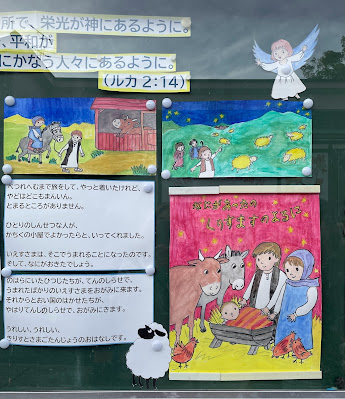 所で、栄光が神にあるように。
、平和が
にかなう人々にあるように。
(ルカ 2:14)
べつれへむまで旅をして、やっと着いたけれど、
やどはどこもまんいん。
とまるところがありません。
ひとりのしんせつな人が、
かちくの小屋でよかったらと、いってくれました。
いえすさまは、そこでうまれることになったのです。
そして、なにがおきたでしょう。
のはらにいたひつじたちが、てんのしらせで、
うまれたばかりのいえすさまをおがみに来ます。
それからとおい国のはかせたちが、
やはりてんしのしらせで、おがみにきます。
うれしい、うれしい、
きりすとさまごたんじょうのおはなしです。
くりすますのよるに